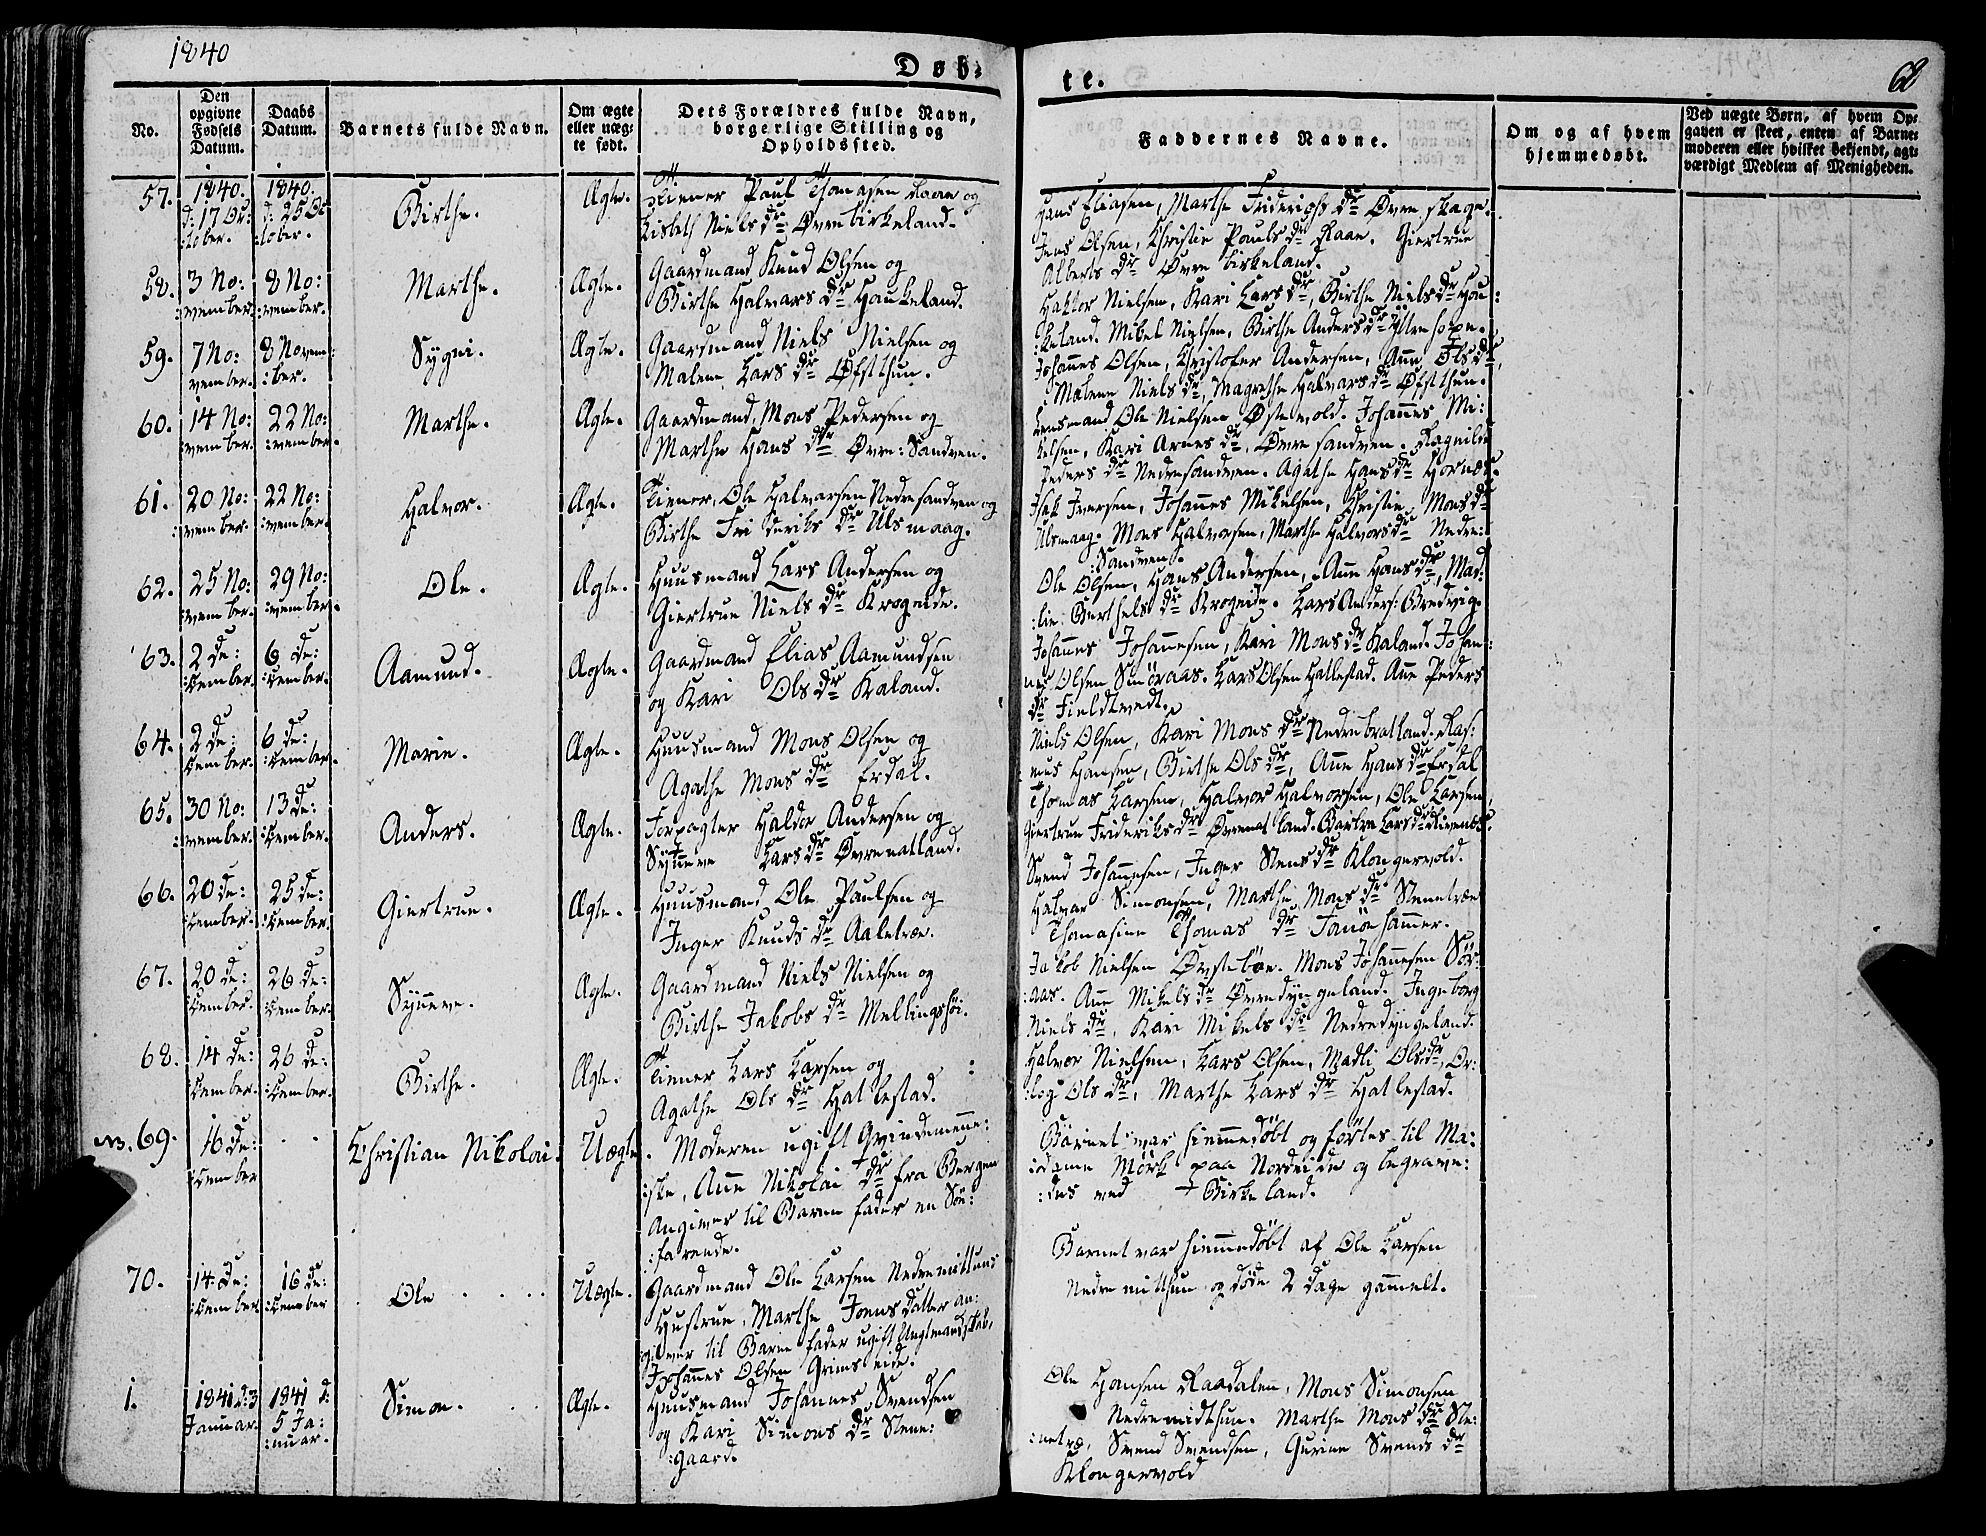 1840
Døb-
te.
68
No.
Den
opgivne
Fødsels
Datum.
Daabs
Datum.
Barnets fulde Navn.
Om ægte
eller uæg-
te født.
Dets Forældres fulde Navn,
borgerlige Stilling og
Opholdssted.
Faddernes Navne.
Om og af hvem
hjemmedøbt.
Ved uægte Børn, af hvem Op-
gaven er skeet, enten af Barne-
moderen eller hvilket bekjendt, agt-
værdigt Medlem af Menigheden.
57.
1840.
d: 17 Oc:
:tober.
1840.
d: 25 Oc
:tober.
Birthe.
Ægte.
Tiener Paul Thomasen Raae og
Lisbeth Niels dr Øvre birkeland.
Hans Eliasen, Marthe Friderichs dr Øvre skage.
Jens Olsen, Christie Pauls dr Raae. Giertrue
Alberts dr Øvre birkeland.
58.
3 No:
:vember.
8 No:
:vember.
Marthe.
Ægte.
Gaardmand Knud Olsen og
Birthe Halvars dr Haukeland.
Haktor Nielsen, Kari Lars dr, Birthe Niels dr Hau:
:keland. Mikel Nielsen, Birthe Anders dr Yttre hope.
59.
7 No:
vember.
8 Novem:
:ber.
Sygni.
Ægte.
Gaardmand Niels Nielsen og
Malene Lars dr Øfstthun.
Johannes Olsen, Christofer Andersen, Anne Ols dr,
Malene Niels dr, Magrethe Halvars dr Øfstthun.
60.
14 No:
vember.
22 No:
:vember.
Marthe.
Ægte.
Gaardmand, Mons Pedersen og
Marthe Hans dr Øvre: Sandven.
Lensmand Ole Nielsen Østevold. Johannes Mi:
kelsen, Kari Arnes dr, Øvre sandven. Ragnilde
Peders dr Nedre sandven. Agathe Hans dr Hornæs.
61.
20 No:
:vember.
22 No:
:vember.
Halvor.
Ægte.
Tiener, Ole Halvorsen Nedre sandven og
Birthe Frideriks dr Ulsmaag.
Isak Iversen, Johannes Mikelsen, Christie Mons dr
Ulsmaag. Mons Halvorsen, Marthe Halvors dr Nedre:
:Sandven.
62.
25 No:
:vember.
29 No:
:vember.
Ole.
Ægte.
Huusmand Lars Andersen og
Giertrue Niels dr Krogeide.
Ole Olsen, Hans Andersen, Anne Hans dr, Mad:
:lie Berthels dr Krogeide. Lars Anders: Bredvig.
63.
2 De:
:cember.
6 De:
:cember.
Aamund.
Ægte.
Gaardmand Elias Aamundsen
og Kari Ols dr Kaland.
Johannes Johannesen, Kari Mons dr Kaland. Johan:
nes Olsen Smöraas. Lars Olsen Hallestad. Anne Peders
dr Fieldtvedt.
64.
2 De:
:cember.
6 De:
:cember.
Marie.
Ægte.
Huusmand Mons Olsen og
Agathe Mons dr Erdal.
Niels Olsen, Kari Mons dr Nedre bratland. Ras:
:mus Hansen, Birthe Ols dr, Anne Hans dr Erdal
65.
30 No:
:vember.
13 De:
:cember.
Anders.
Ægte.
Forpagter Haldor Andersen og
Synneve Lars dr Øvre natland.
Thomas Larsen, Halvor Halvorsen, Ole Larsen,
Giertrue Frideriks dr Øvrenatland. Lars dr
66.
20 De:
:cember.
25 De:
:cember.
Giertrue.
Ægte.
Huusmand Ole Paulsen og
Inger Knuds dr Aaletræe.
Svend Johannesen, Inger Stens dr Klongervold.
Halvar Simonsen, Marthe Mons dr Stenetræe
Thomasine Thomas dr Fanöe hammer.
67.
20 De:
:cember.
26 De:
:cember.
Synneve.
Ægte.
Gaardmand Niels Nielsen og
Birthe Jakobs dr Mellingshöi.
Jakob Nielsen Øvstebøe. Mons Johannesen Sör:
:aas. Anne Mikels dr Øvredyngeland. Ingeborg
Niels dr, Kari Mikels dr Nedredyngeland.
68.
14 De:
:cember.
26 De:
:cember.
Birthe.
Ægte.
Tiener Lars Larsen og
Agathe Ols dr Hatlestad.
Halvor Nielsen, Lars Olsen, Madli Ols dr, Or:
:log Ols dr, Marthe Lars dr Hatlestad.
NB. 69.
16 De:
:cember
Christian Nikolai.
Uægte.
Moderen ugift Qvindemenne:
:ske, Anne Nikolai dr fra Bergen
Angiver til Barne fader en Söe:
:farende.
Barnet var hiemmedöbt og förtes til Ma:
:dame Mörk paa Nordeide og begrave:
:des ved + Birkeland.
70.
14 De:
:cember
16 De:
:cember
Ole
Uægte.
Gaardmand Ole Larsen Nedremitthuns
Hustrue, Marthe Joens Datter an:
:giver til Barne fader ugift Ungkmandskab,
Johannes Olsen Grimseide.
Barnet var hiemmedöbt af Ole Larsen
Nedre mitthun og døde 2 dage gammelt.
1.
1841 d: 3
Januar.
1841 d:
5 Ja:
:nuar.
Simon.
Ægte.
Huusmand Johannes Svendsen
og Kari Simons dr Stene:
:gaard.
Ole Hansen Raadalen, Mons Simonsen
Nedremidthun. Marthe Mons dr Ste:
:netræ, Svend Svendsen, Gurine Svends dr
Klongervold